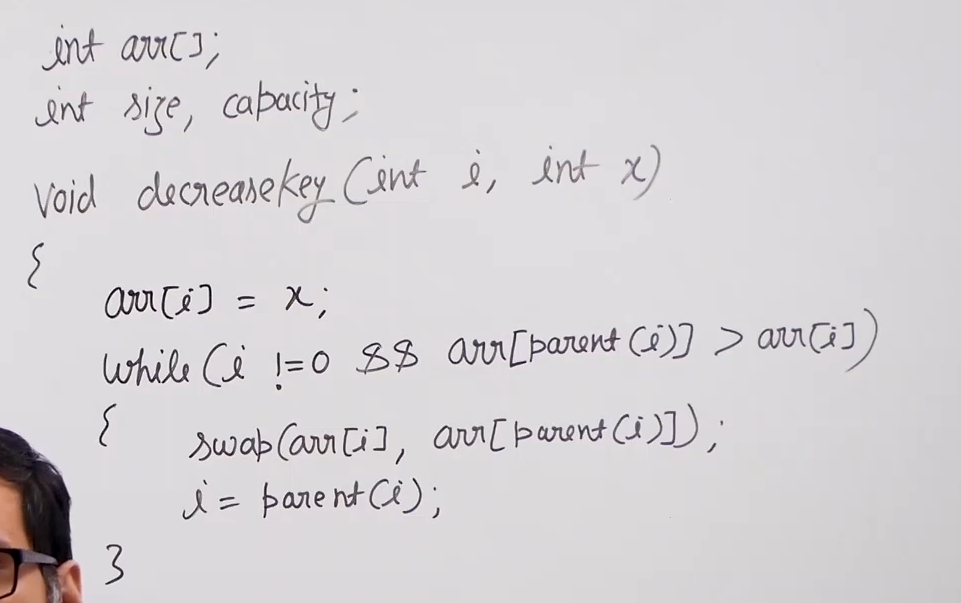 int arr[];
int size, capacity;
void decreasekey(int i, int x)
{
arr[i] = x;
while(i !=0 && arr[parent(i)] > arr[i])
{ swap(arr[i], arr[parent(i)]);
i = parent(i);
}